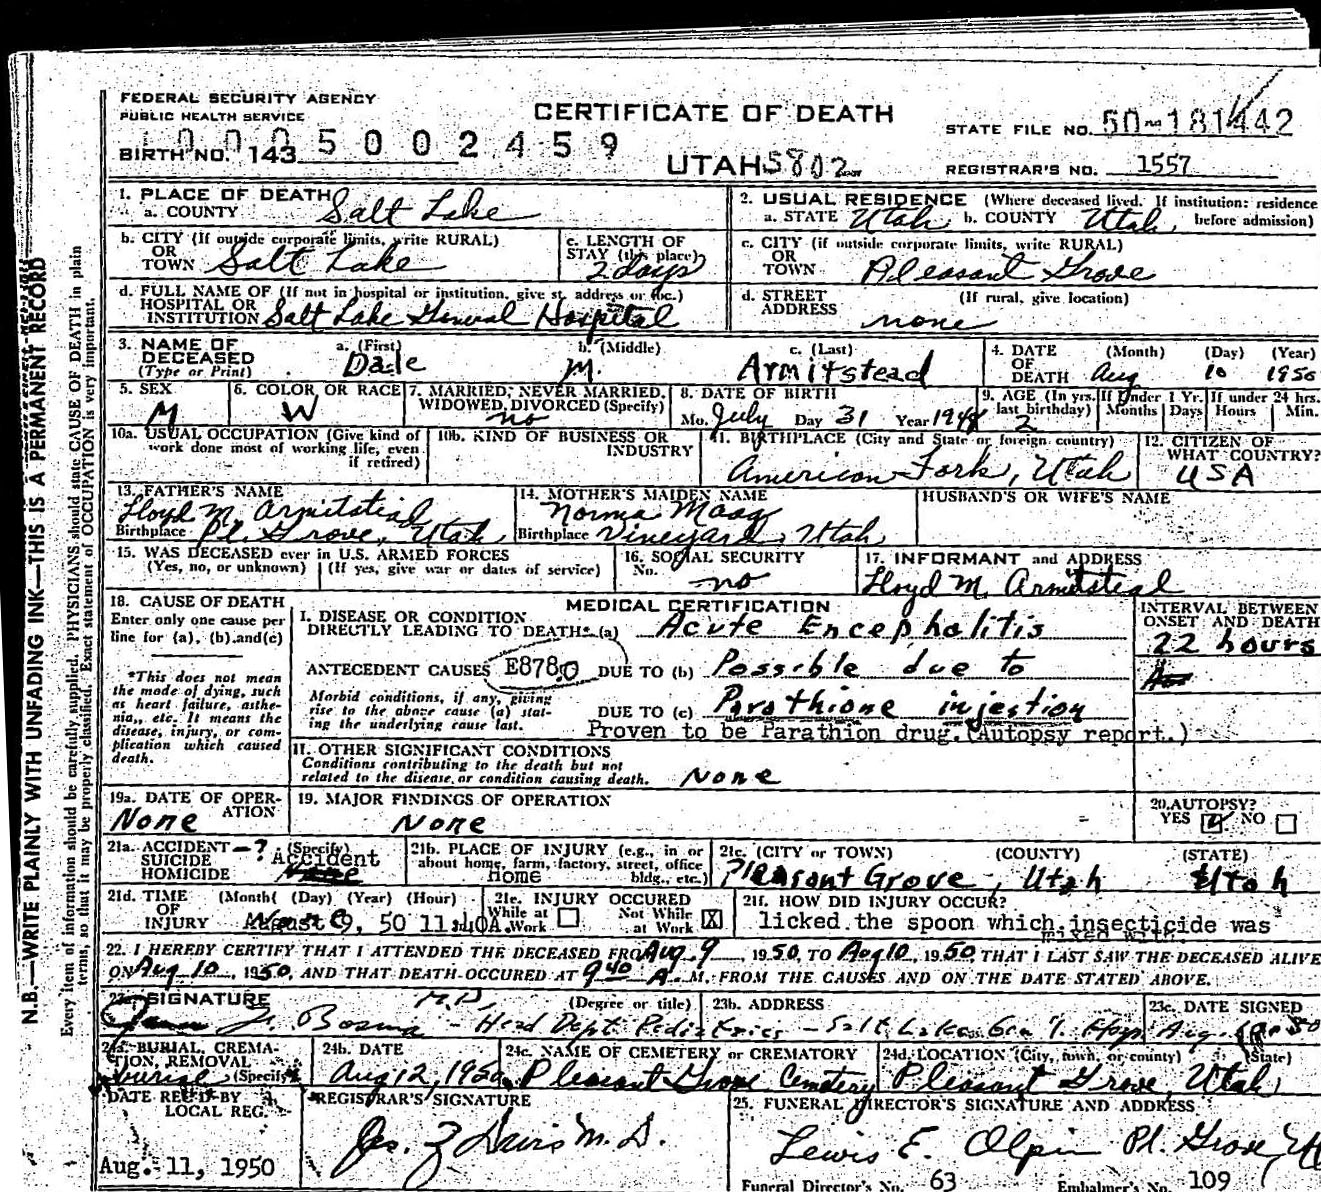 FEDERAL SECURITY AGENCY
PUBLIC HEALTH SERVICE
CERTIFICATE OF DEATH
STATE FILE NO. 50-181442
BIRTH NO. 143 5002459
UTAH 5802
REGISTRAR'S NO. 1557
1. PLACE OF DEATH
a. COUNTY Salt Lake
2. USUAL RESIDENCE (Where deceased lived. If institution: residence before admission)
a. STATE Utah b. COUNTY Utah
b. CITY (If outside corporate limits, write RURAL)
OR
TOWN Salt Lake
c. LENGTH OF
STAY (this place)
2 days
c. CITY (if outside corporate limits, write RURAL)
OR
TOWN Pleasant Grove
d. FULL NAME OF (If not in hospital or institution, give st. address or loc.)
HOSPITAL OR
INSTITUTION Salt Lake General Hospital
d. STREET (If rural, give location)
ADDRESS none
3. NAME OF DECEASED
(Type or Print)
a. (First) Dale
b. (Middle) M.
c. (Last) Armitstead
4. DATE OF DEATH (Month) (Day) (Year)
Aug 10 1950
5. SEX
M
6. COLOR OR RACE
W
7. MARRIED, NEVER MARRIED,
WIDOWED, DIVORCED (Specify)
no
8. DATE OF BIRTH
Mo. July Day 31 Year 1948
9. AGE (In yrs. last birthday) 2
If Under 1 Yr. Months Days
If under 24 hrs. Hours Min.
10a. USUAL OCCUPATION (Give kind of
work done most of working life, even
if retired)
10b. KIND OF BUSINESS OR
INDUSTRY
11. BIRTHPLACE (City and State or foreign country)
American Fork, Utah
12. CITIZEN OF
WHAT COUNTRY?
USA
13. FATHER'S NAME
Lloyd M. Armitstead
Birthplace Pl. Grove, Utah
14. MOTHER'S MAIDEN NAME
Norma Maag
Birthplace Vineyard, Utah
HUSBAND'S OR WIFE'S NAME
15. WAS DECEASED ever in U.S. ARMED FORCES
(Yes, no, or unknown) (If yes, give war or dates of service)
16. SOCIAL SECURITY
No. no
17. INFORMANT and ADDRESS
Lloyd M. Armitstead
18. CAUSE OF DEATH
Enter only one cause per
line for (a), (b) and (c)
*This does not mean
the mode of dying, such
as heart failure, asthe-
nia, etc. It means the
disease, injury, or com-
plication which caused
death.
MEDICAL CERTIFICATION
I. DISEASE OR CONDITION
DIRECTLY LEADING TO DEATH* (a) Acute Encephalitis
ANTECEDENT CAUSES E878.0 DUE TO (b) Possible due to
Morbid conditions, if any, giving
rise to the above cause (a) stat-
ing the underlying cause last.
DUE TO (c) Parathione injestion
Proven to be Parathion drug. (Autopsy report.)
II. OTHER SIGNIFICANT CONDITIONS
Conditions contributing to the death but not
related to the disease or condition causing death. None
INTERVAL BETWEEN
ONSET AND DEATH
22 hours
19a. DATE OF OPER-
ATION
None
19. MAJOR FINDINGS OF OPERATION
None
20. AUTOPSY?
YES NO
21a. ACCIDENT -? (Specify)
SUICIDE Accident
HOMICIDE
21b. PLACE OF INJURY (e.g., in or
about home, farm, factory, street, office
bldg., etc.)
Home
21c. (CITY or TOWN) (COUNTY) (STATE)
Pleasant Grove, Utah Utah
21d. TIME OF INJURY (Month) (Day) (Year) (Hour)
August 9, 50 11:40A.
21e. INJURY OCCURED
While at Work
Not While at Work X
21f. HOW DID INJURY OCCUR?
licked the spoon which insecticide was
mixed with
22. I HEREBY CERTIFY THAT I ATTENDED THE DECEASED FROM Aug. 9 1950, TO Aug 10, 1950, THAT I LAST SAW THE DECEASED ALIVE
ON Aug 10, 1950, AND THAT DEATH OCCURED AT 9 40 A. M. FROM THE CAUSES AND ON THE DATE STATED ABOVE.
SIGNATURE (Degree or title)
Bosma M.D. - Head Dept Pediatrics
23b. ADDRESS
Salt Lake Gen'l Hosp
23c. DATE SIGNED
Aug.
24a. BURIAL, CREMA-
TION, REMOVAL
(Specify) burial
24b. DATE
Aug 12, 1950
24c. NAME OF CEMETERY or CREMATORY
Pleasant Grove Cemetery
24d. LOCATION (City, town, or county) (State)
Pleasant Grove, Utah
DATE REC'D BY
LOCAL REG.
Aug. 11, 1950
REGISTRAR'S SIGNATURE
Jas. Z Davis M.D.
25. FUNERAL DIRECTOR'S SIGNATURE AND ADDRESS
Lewis E. Olpin Pl. Grove, Ut
Funeral Director's No. 63 Embalmer's No. 109
N.B.—WRITE PLAINLY WITH UNFADING INK—THIS IS A PERMANENT RECORD
Every item of information should be carefully supplied. PHYSICIANS should state CAUSE OF DEATH in plain
terms, so that it may be properly classified. Exact statement of OCCUPATION is very important.